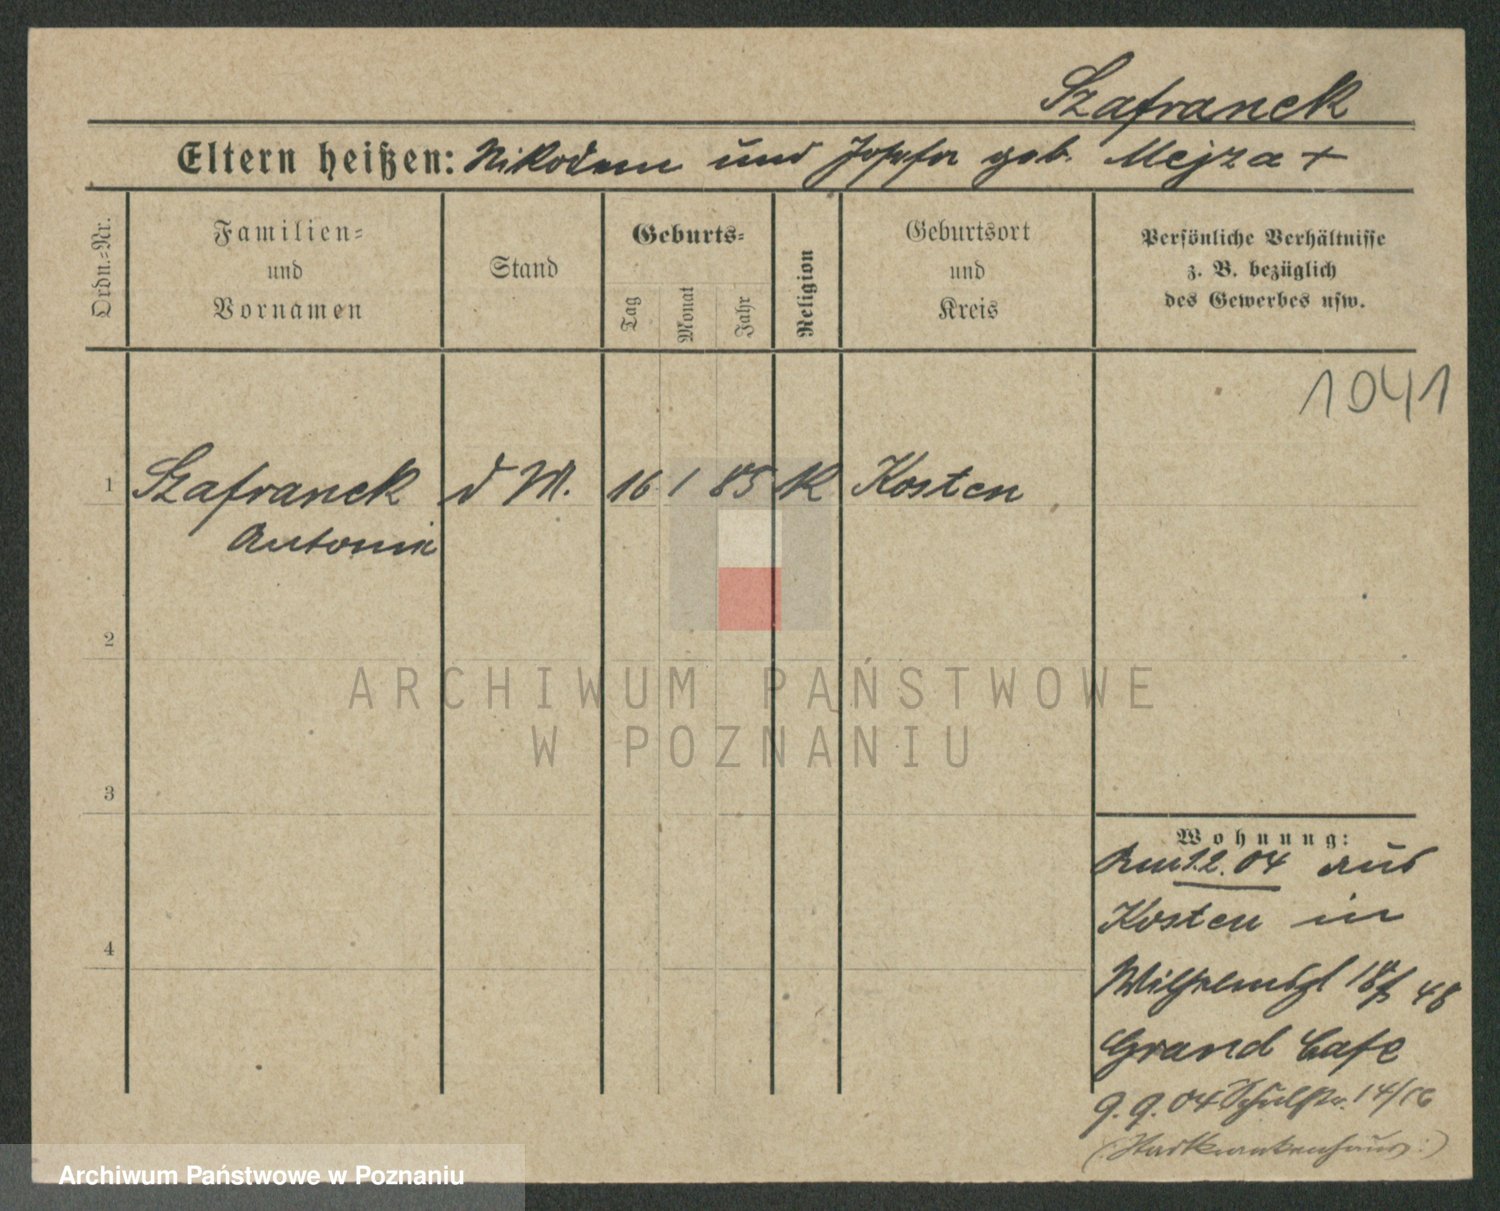 Szafranek
Eltern heißen: Nikodem und Josefa geb. Mejza +
Ordn.-Nr.
Familien-
und
Vornamen
Stand
Geburts-
Tag
Monat
Jahr
Religion
Geburtsort
und
Kreis
Persönliche Verhältnisse
z. B. bezüglich
des Gewerbes usw.
1041
1 Szafranek d M. 16 1 85 K Kosten
Antonie
2
3
4
Wohnung:
Am 1.2.04 aus
Kosten in
Wilhelmspl 18 48
Grand Cafe
9.9.04 Schulstr. 14/16
(Stadtkrankenhaus:)
ARCHIWUM PAŃSTWOWE
W POZNANIU
Archiwum Państwowe w Poznaniu